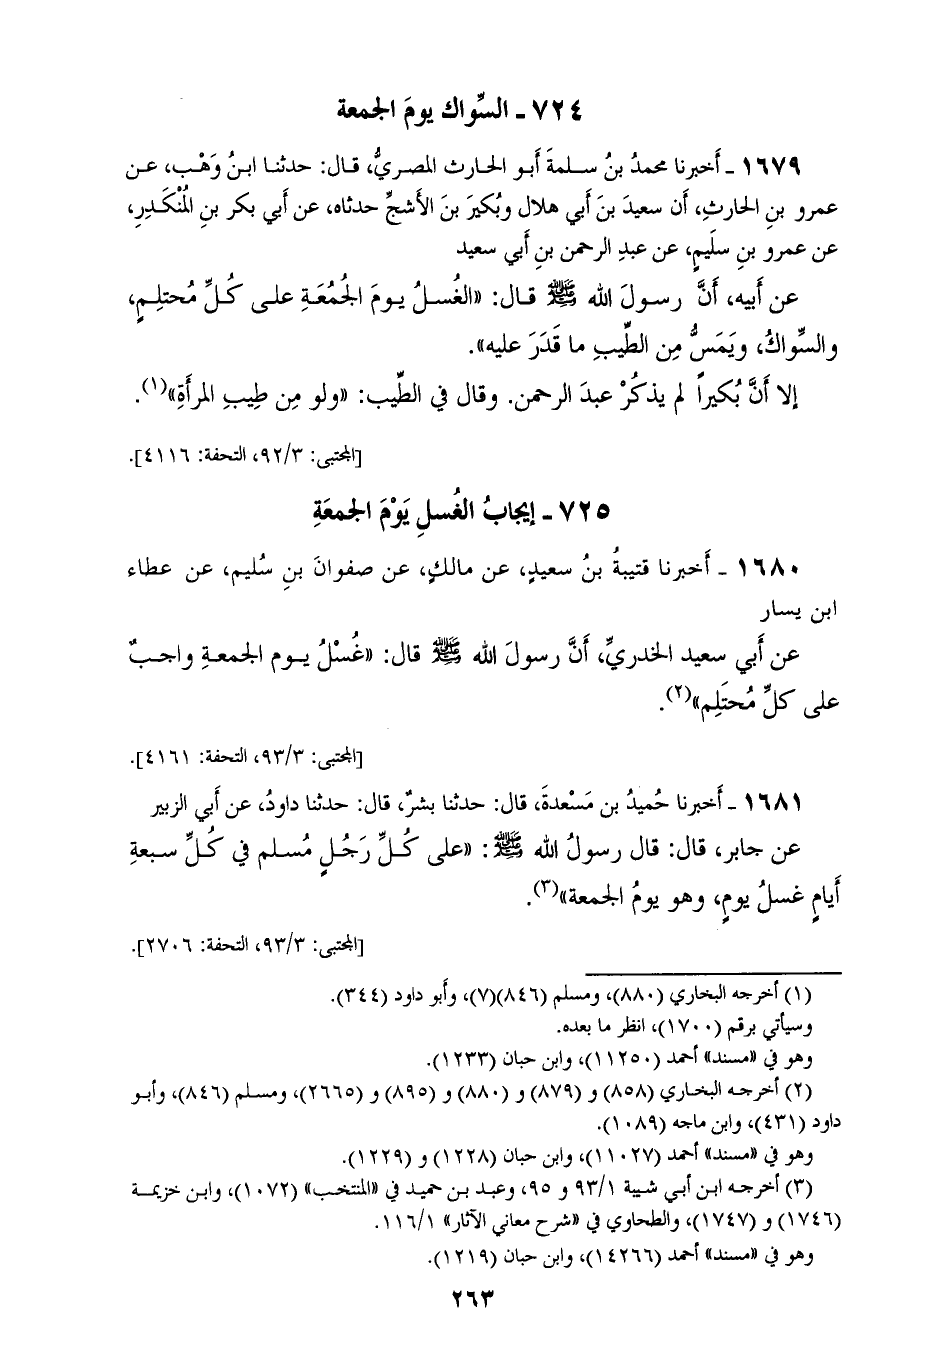 ٧٢٤ ـ السِّواك يومَ الجمعة
١٦٧٩ ـ أخبرنا محمدُ بنُ سلمةَ أبو الحارث المصريُّ، قال: حدثنا ابنُ وَهْب، عن
عمرو بنِ الحارثِ، أن سعيدَ بنَ أبي هلال وبُكيرَ بنَ الأشجِّ حدثاه، عن أبي بكر بنِ المُنْكَدِرِ،
عن عمرو بنِ سلَيمٍ، عن عبدِ الرحمن بنِ أبي سعيد
عن أبيه، أنَّ رسولَ الله ﷺ قال: «الغُسلُ يومَ الجُمُعَةِ على كُلِّ مُحتلِمٍ،
والسِّواكُ، ويَمَسُّ مِن الطِّيبِ ما قَدَرَ عليه».
إلا أنَّ بُكيراً لم يذكُرْ عبدَ الرحمن. وقال في الطِّيب: «ولو مِن طِيبِ المرأَةِ»(١).
[المجتبى: ٩٢/٣، التحفة: ٤١١٦].
٧٢٥ ـ إيجابُ الغُسلِ يَوْمَ الجمعَةِ
١٦٨٠ ـ أَخبرنا قتيبةُ بنُ سعيدٍ، عن مالكٍ، عن صفوانَ بنِ سُليم، عن عطاء
ابن يسار
عن أبي سعيد الخدريِّ، أنَّ رسولَ الله ﷺ قال: «غُسْلُ يوم الجمعةِ واجبٌ
على كلِّ مُحتَلِم»(٢).
[المجتبى: ٩٣/٣، التحفة: ٤١٦١].
١٦٨١ ـ أَخبرنا حُميدُ بن مَسْعدةَ، قال: حدثنا بشرٌ، قال: حدثنا داودُ، عن أبي الزبير
عن جابر، قال: قال رسولُ الله ﷺ: «على كُلِّ رَجُلٍ مُسلم في كُلِّ سبعةِ
أَيامٍ غسلُ يومٍ، وهو يومُ الجمعة»(٣).
[المجتبى: ٩٣/٣، التحفة: ٢٧٠٦].
(١) أخرجه البخاري (٨٨٠)، ومسلم (٨٤٦)(٧)، وأبو داود (٣٤٤).
وسيأتي برقم (١٧٠٠)، انظر ما بعده.
وهو في «مسند» أحمد (١١٢٥٠)، وابن حبان (١٢٣٣).
(٢) أخرجه البخاري (٨٥٨) و (٨٧٩) و (٨٨٠) و (٨٩٥) و (٢٦٦٥)، ومسلم (٨٤٦)، وأبو
داود (٤٣١)، وابن ماجه (١٠٨٩).
وهو في «مسند» أحمد (١١٠٢٧)، وابن حبان (١٢٢٨) و (١٢٢٩).
(٣) أخرجه ابن أبي شيبة ٩٣/١ و ٩٥، وعبد بن حميد في «المنتخب» (١٠٧٢)، وابن خزيمة
(١٧٤٦) و (١٧٤٧)، والطحاوي في «شرح معاني الآثار» ١١٦/١.
وهو في «مسند» أحمد (١٤٢٦٦)، وابن حبان (١٢١٩).
٢٦٣